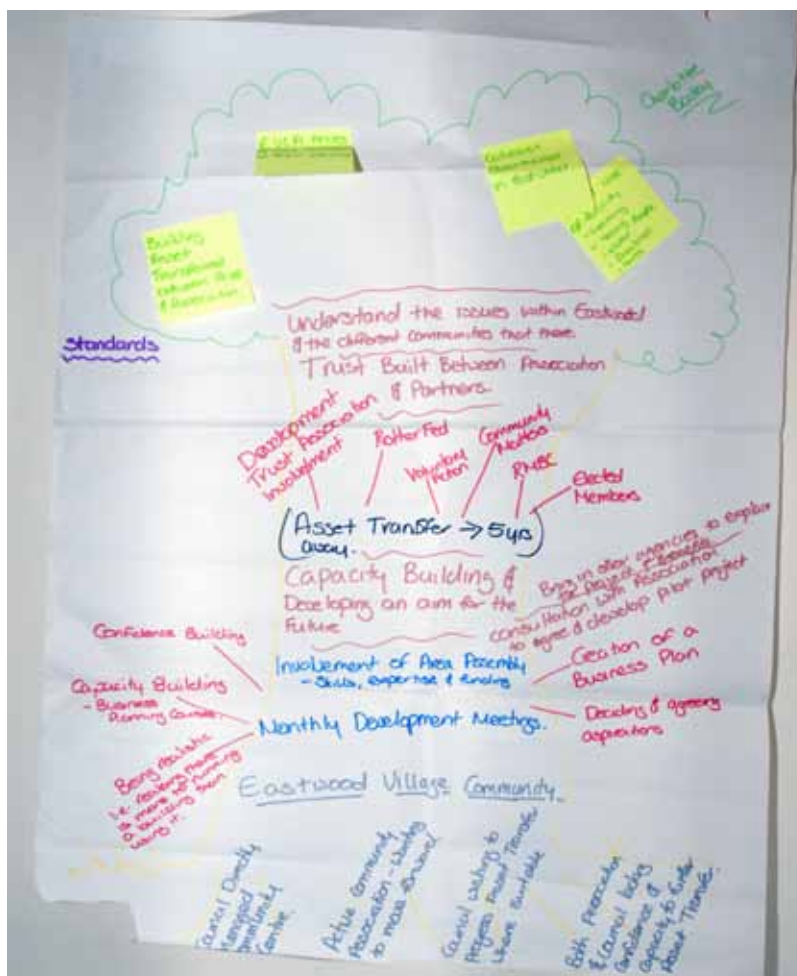 Building
Asset
Transferred
between
& Association
Understand the issues within Eastwood
& the different communities that there.
Standards
Trust Built Between Association
& Partners.
Development
Trust Association
Involvement
RotherFed
Voluntary
Action
Community
Matters
RMBC
Elected
Members
(Asset Transfer → 5yrs)
away.
Capacity Building &
Developing an aim for the
Future
Bring in other agencies to explore
the project & benefits
consultation with Association
to agree & develop pilot project
Confidence Building
Involvement of Area Assembly
- Skills, expertise & funding
Creation of a
Business Plan
Capacity Building
- Business
Planning Courses
Monthly Development Meetings.
Deciding & agreeing
aspirations
Being realistic
i.e. realising there
is more to running
a building than
using it.
Eastwood Village Community.
Council Directly
Managed
Community
Centre.
Active Community
Association - wanting
to move forward
Council wishing to
Progress Asset Transfer
where suitable
Both Association
& Council lacking
Confidence &
capacity to further
Asset Transfer.